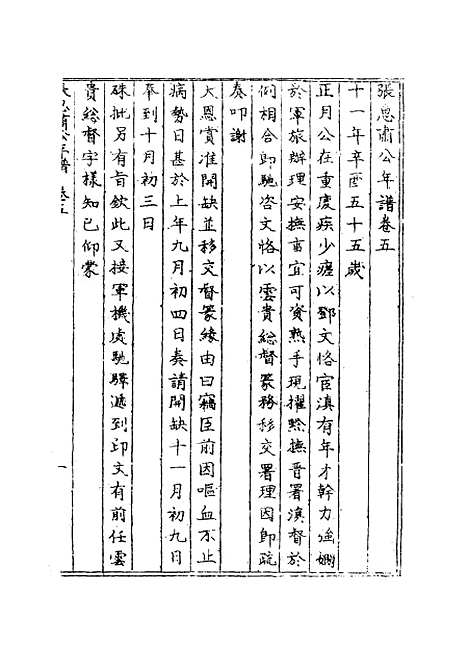 張惠肅公年譜卷五
十一年辛酉五十五歲
正月公在重慶疾少瘥以鄧文恪官滇有年才幹力強嫺
於軍旅辦理安撫事宜可資熟手現擢黔撫晉署滇督於
例相合即馳咨文恪以雲貴總督篆務移交署理因即疏
奏叩謝
天恩賞准開缺並移交督篆緣由曰竊臣前因嘔血不止
病勢日甚於上年九月初四日奏請開缺十一月初九日
奉到十月初三日
硃批另有旨欽此又接軍機處馳驛遞到印文有前任雲
貴總督字樣知已仰蒙
年譜 卷五
一